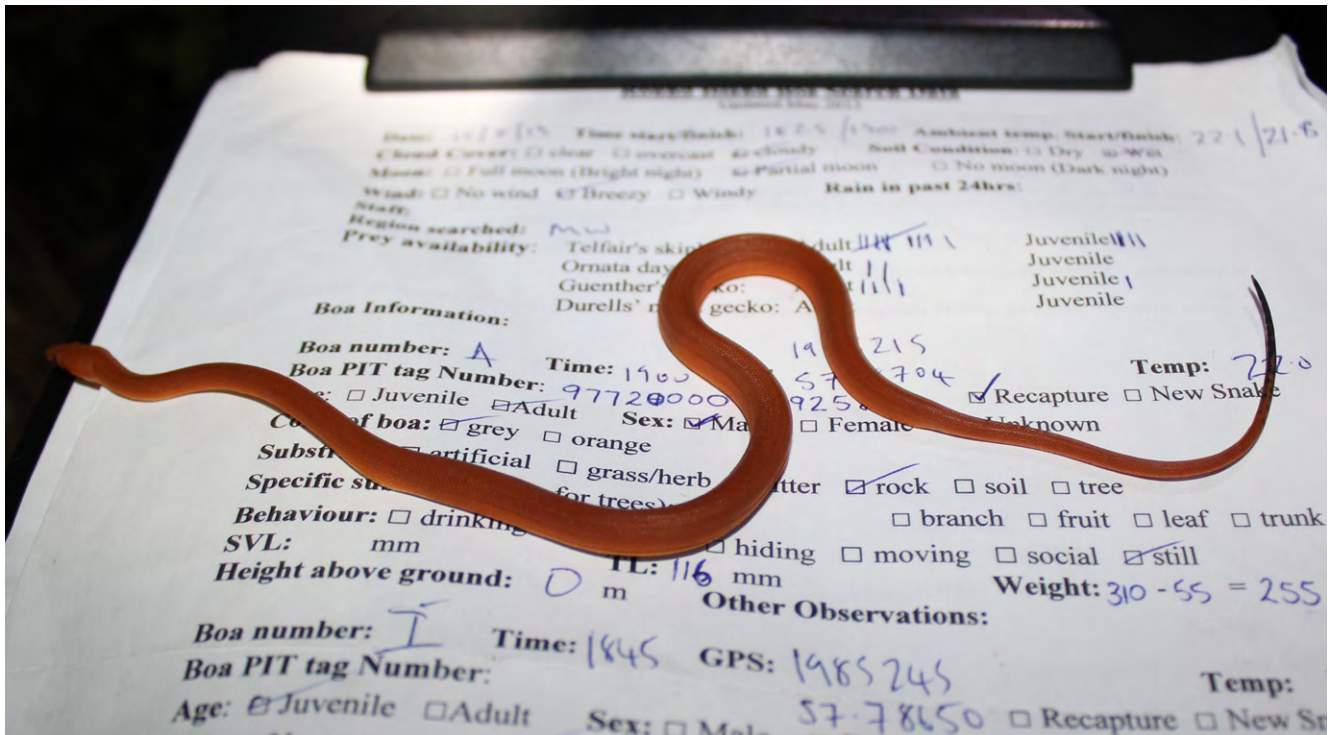 Boa Search Data
Updated May 2011
Date: Time start/finish: 1825/1900 Ambient temp. Start/finish: 22.1/21.8
Cloud Cover: □ clear □ overcast ☑ cloudy Soil Condition: □ Dry ☑ Wet
Moon: □ Full moon (Bright night) ☑ Partial moon □ No moon (Dark night)
Wind: □ No wind ☑ Breezy □ Windy Rain in past 24hrs:
Staff:
Region searched: MW
Prey availability: Telfair's Adult Juvenile
Ornata day Juvenile
Guenther's Juvenile
Durells' gecko: Juvenile
Boa Information:
Boa number: A Time: 1900 Temp: 22.0
Boa PIT tag Number: 97720000 ☑ Recapture □ New Snake
□ Juvenile ☑ Adult Sex: ☑ □ Female Unknown
of boa: ☑ grey □ orange
artificial □ grass/herb ☑ rock □ soil □ tree
Specific for trees) □ branch □ fruit □ leaf □ trunk
Behaviour: □ drinking □ hiding □ moving □ social ☑ still
SVL: mm TL: 116 mm Weight: 310 - 55 = 255
Height above ground: 0 m Other Observations:
Boa number: I Time: 1845 GPS: 1985245
Boa PIT tag Number: 57.78650 Temp:
Age: ☑ Juvenile □ Adult Sex: □ Male □ Recapture □ New